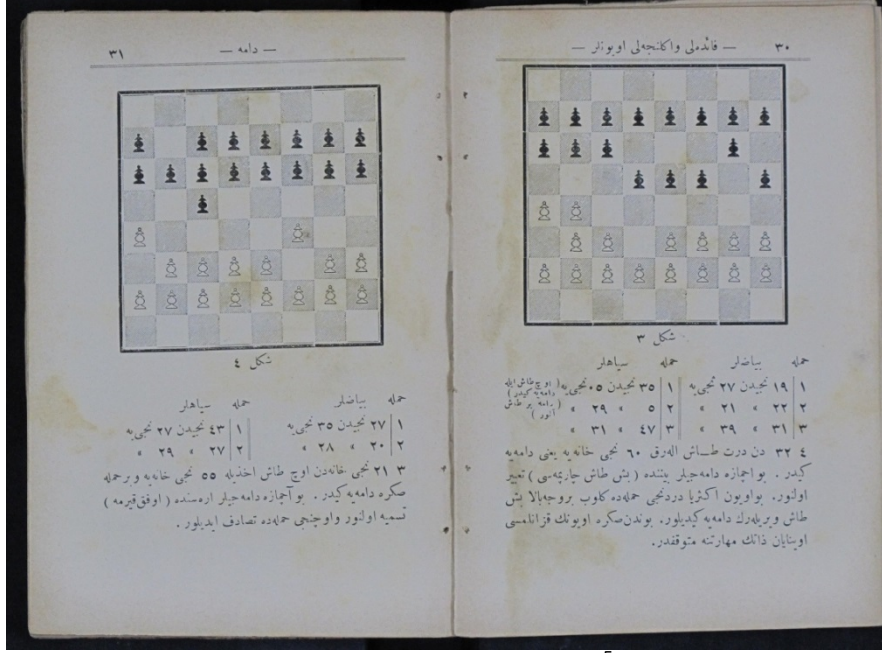 ٣٠ — فائده‌لی واكلنجه‌لی اويونلر —
شكل ٣
حمله بياضلر حمله سياهلر
١ ١٩ نجيدن ٢٧ نجی‌يه ١ ٣٥ نجيدن ٥٠ نجی‌يه ( اوچ طاش ايله دامه‌يه كيدر )
٢ ٢٢ » ٢١ » ٢ ٥ » ٢٩ » ( دامه بر طاش آلور )
٣ ٣١ » ٣٩ » ٣ ٤٧ » ٣١ »
٤ ٣٢ دن درت طــاش الهرق ٦٠ نجی خانه‌يه يعنی دامه‌يه
كيدر . بو اچمازه دامه‌جيلر بيننده ( بش طاش چاريمه‌سی ) تعبير
اولنور. بواويون اكثريا دردنجی حمله‌ده كلوب بروجه‌بالا بش
طاش ويريله‌رك دامه‌يه كيديلور. بوندن‌صكره اويونك قزانلمسی
اوينايان ذاتك مهارتنه متوقفدر.
— دامه — ٣١
شكل ٤
حمله بياضلر حمله سياهلر
١ ٢٧ نجيدن ٣٥ نجی‌يه ١ ٤٣ نجيدن ٢٧ نجی‌يه
٢ ٢٠ » ٢٨ » ٢ ٢٧ » ٢٩ »
٣ ٢١ نجی خانه‌دن اوچ طاش اخذيله ٥٥ نجی خانه‌يه و بر حمله
صكره دامه‌يه كيدر . بو آچمازه دامه‌جيلر اره‌سنده ( اوفق قيرمه )
تسميه اولنور واوچنجی حمله‌ده تصادف ايديلور .